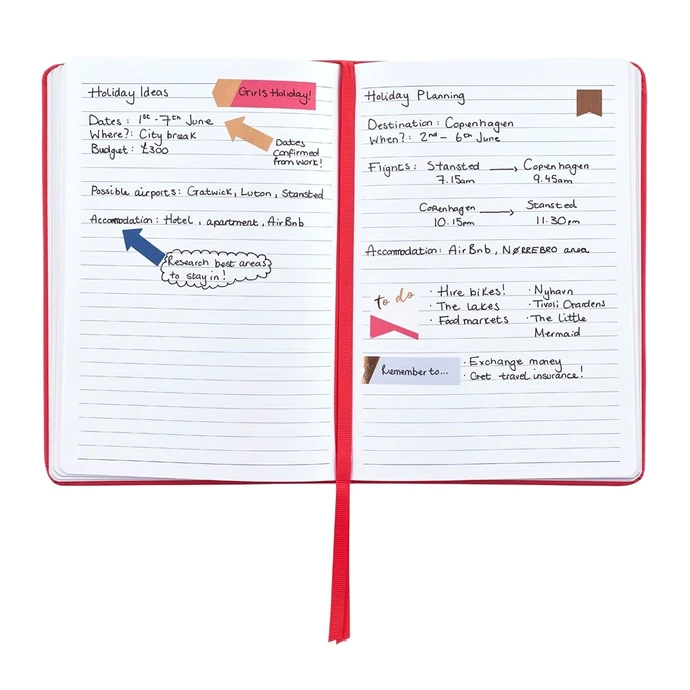 Holiday Ideas
Girls Holiday!
Dates : 1st - 7th June
Where?: City break
Budget: £300
Dates
confirmed
from work!
Possible airports: Gatwick, Luton, Stansted
Accomodation: Hotel, apartment, AirBnb
Research best areas
to stay in!
Holiday Planning
Destination: Copenhagen
When?: 2nd - 6th June
Flights: Stansted → Copenhagen
7.15am 9.45am
Copenhagen → Stansted
10.15pm 11.30pm
Accommodation: AirBnb, NØRREBRO area
to do
· Hire bikes!
· The lakes
· Food markets
· Nyhavn
· Tivoli Gardens
· The Little
Mermaid
Remember to...
· Exchange money
· Get travel insurance!